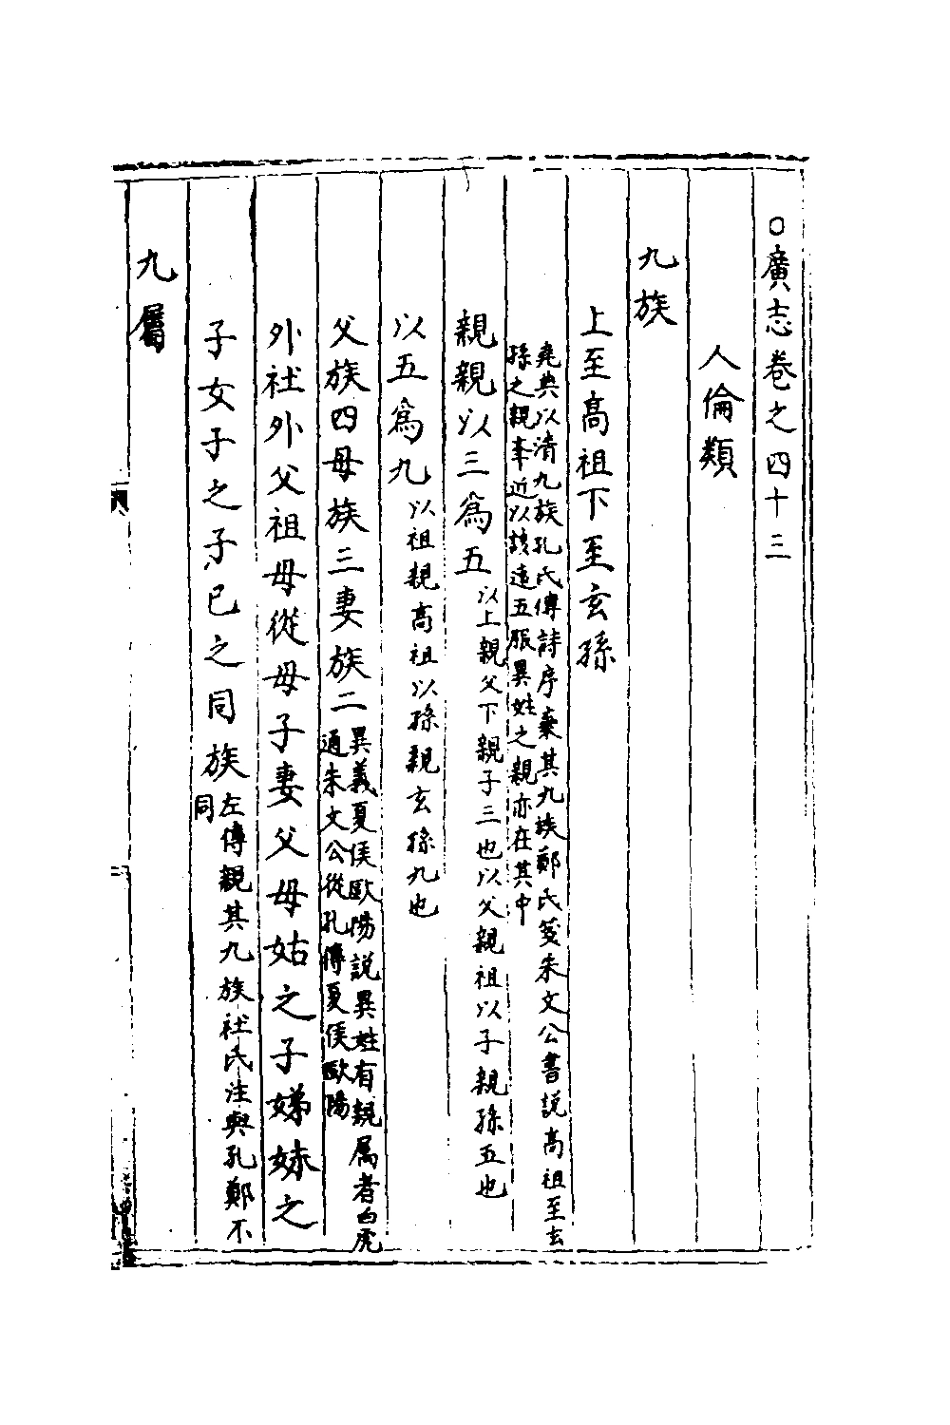 ○廣志卷之四十三
人倫類
九族
上至高祖下至玄孫
堯典以清九族孔氏傳詩序棄其九族鄭氏箋朱文公書說高祖至玄
孫之親舉近以該遠五服異姓之親亦在其中
親親以三爲五以上親父下親子三也以父親祖以子親孫五也
以五爲九以祖親高祖以孫親玄孫九也
父族四母族三妻族二異義夏侯歐陽說異姓有親属者白虎
通朱文公從孔傳夏侯歐陽
外社外父祖母從母子妻父母姑之子娣妹之
子女子之子已之同族左傳親其九族社氏注與孔鄭不
同
九屬